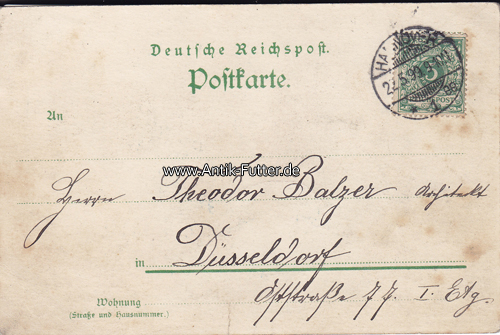 Deutsche Reichspost.
Postkarte.
An
www.Antik-Futter.de
Herrn Theodor Balzer Architekt
in Düsseldorf
Wohnung
(Straße und Hausnummer.)
Oststraße 77. I. Etg.